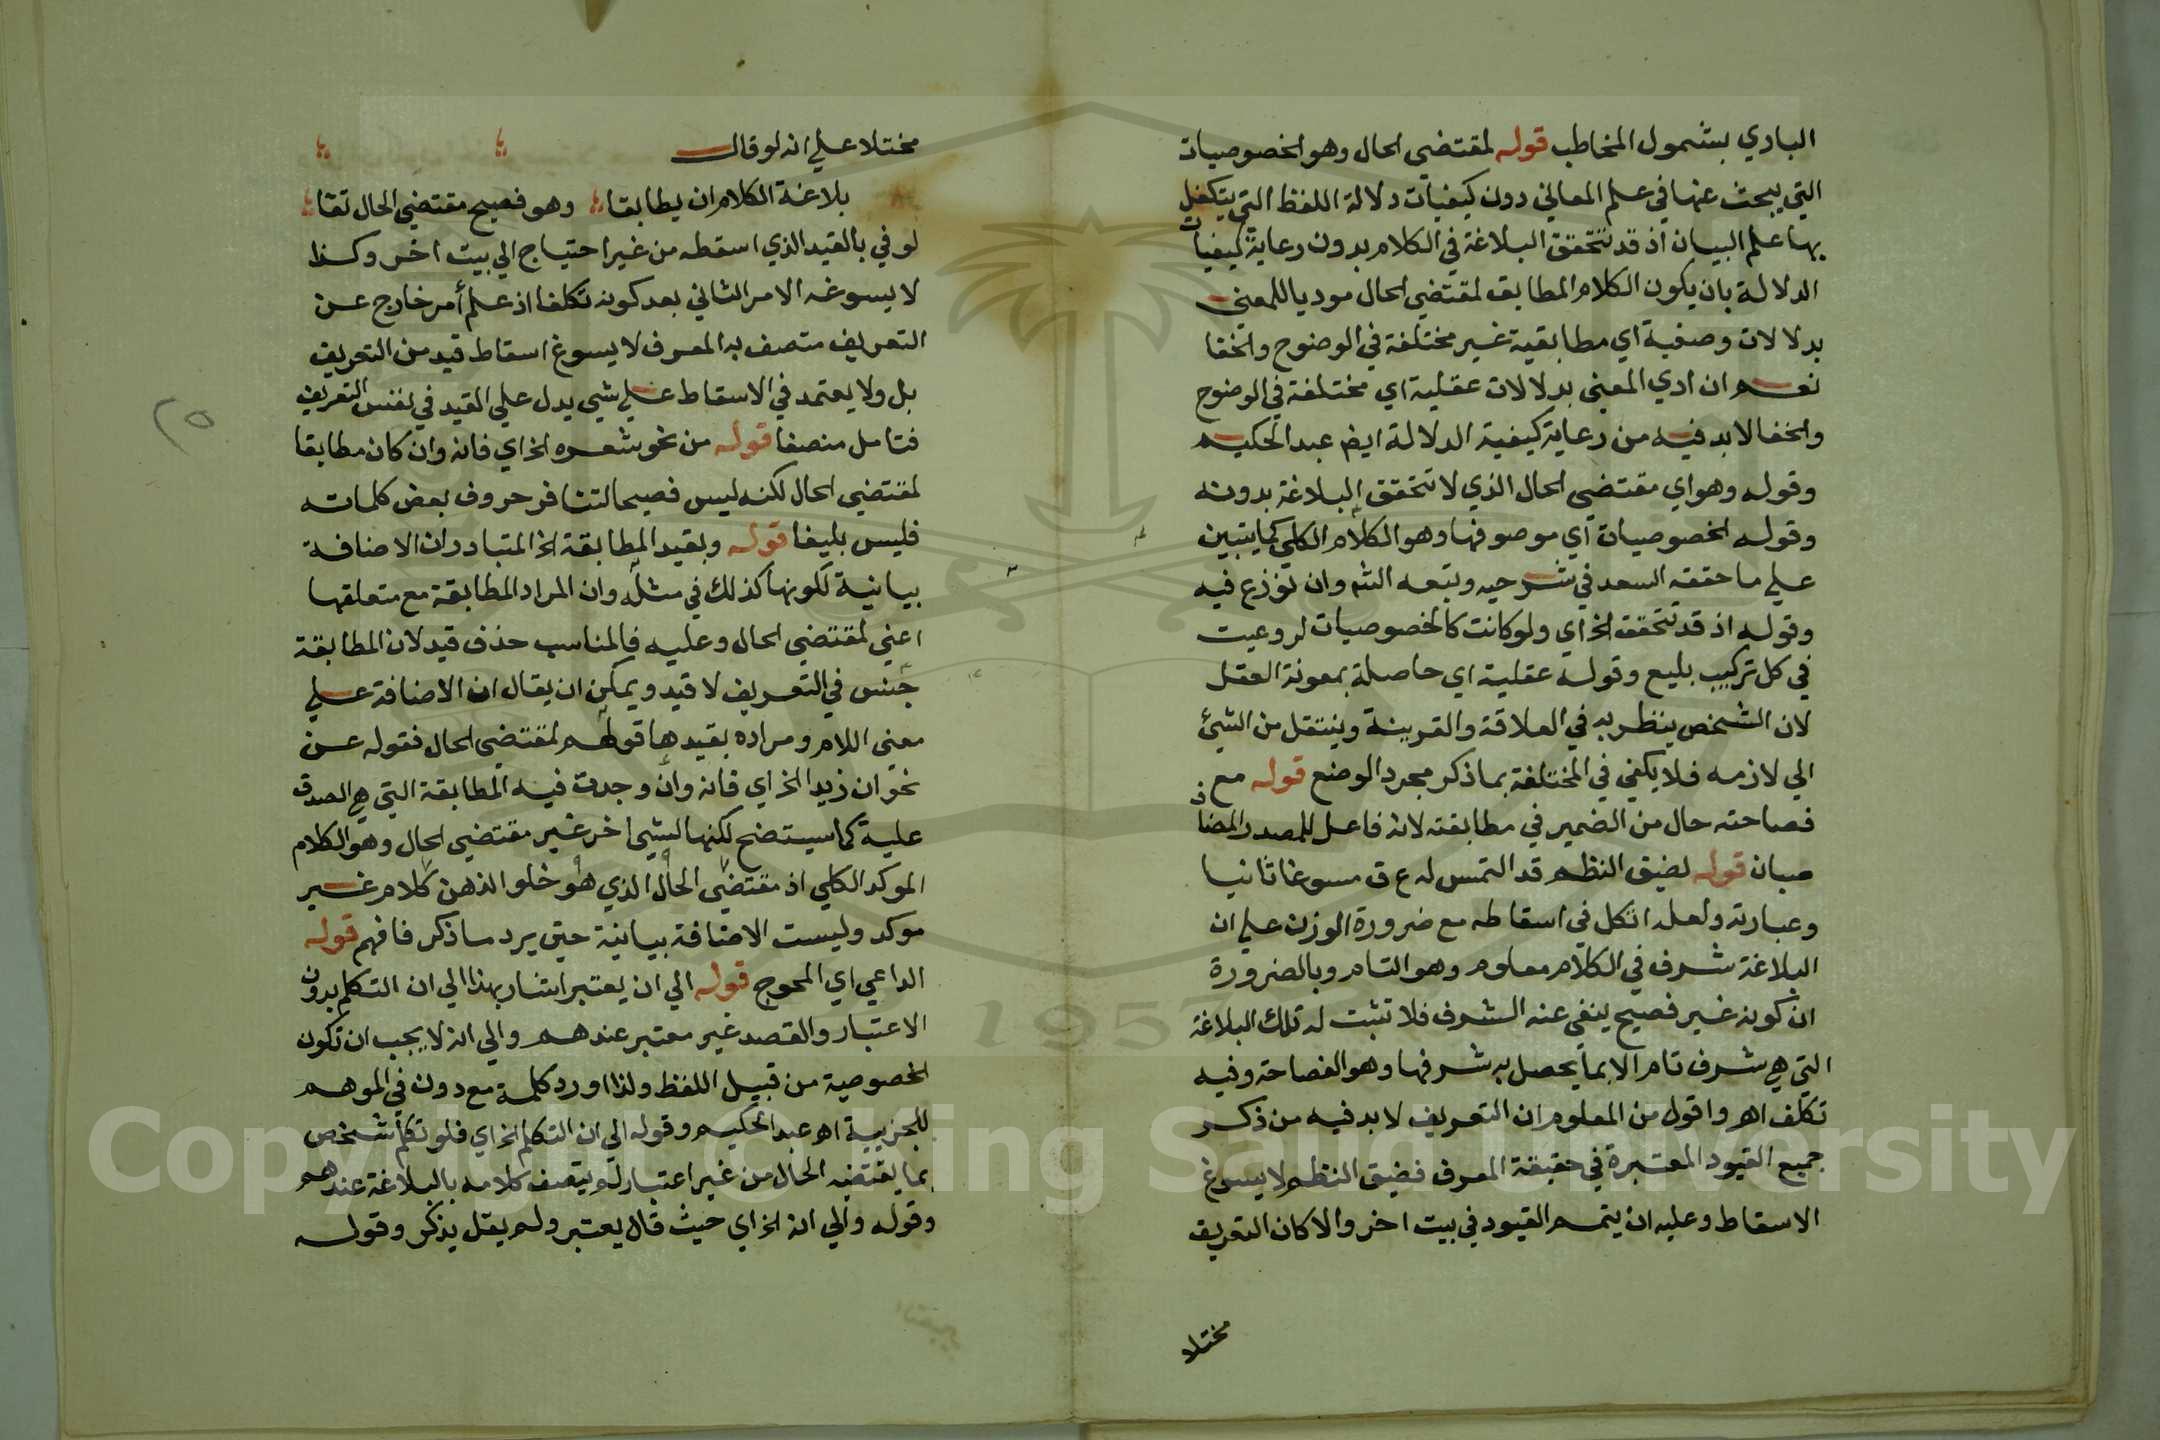 البادي بشمول المخاطب قوله لمقتضي الحال وهو الخصوصيات
التي يبحث عنها في علم المعاني دون كيفيات دلالة اللفظ التي يتكفل
بها علم البيان اذ قد تتحقق البلاغة في الكلام بدون رعاية كيفيات
الدلالة بان يكون الكلام المطابق لمقتضي الحال موديا للمعني
بدلالات وضعية اي مطابقية غير مختلفة في الوضوح والخفا
نعم ان ادي المعني بدلالات عقلية اي مختلفة في الوضوح
والخفا لابد فيه من رعاية كيفية الدلالة ايضا عبد الحكيم
وقوله وهو اي مقتضي الحال الذي لا تتحقق البلاغة بدونه
وقوله الخصوصيات اي موصوفها وهو الكلام الكلي كما يتبين
علي ما حققه السعد في شرحيه وتبعه الشم وان نوزع فيه
وقوله اذ قد تتحقق الخ اي ولو كانت كالخصوصيات لروعيت
في كل تركيب بليع وقوله عقلية اي حاصلة بمعونة العقل
لان الشخص ينظر به في العلاقة والقرينة وينتقل من الشئ
الي لازمه فلا يكفي في المختلفة بما ذكر مجرد الوضع قوله مع
فصاحته حال من الضمير في مطابقته لانه فاعل للمصدر المضاف
صبان قوله لضيق النظم قد التمس له ع ق مسوغا ثانيا
وعبارته ولعله اتكل في اسقاطه مع ضرورة الوزن علي ان
البلاغة شرف في الكلام معلوم وهو التام وبالضرورة
ان كونه غير فصيح ينفي عنه الشرف فلا تثبت له تلك البلاغة
التي هي شرف تام الا بما يحصل به شرفها وهو الفصاحة وفيه
تكلف اهـ واقول من المعلوم ان التعريف لا بد فيه من ذكر
جميع القيود المعتبرة في حقيقة المعرف فضيق النظم لا يسوغ
الاسقاط وعليه ان يتمم القيود في بيت اخر والا كان التعريف
مختلا
مختلا علي انه لو قال
بلاغة الكلام ان يطابقا وهو فصيح مقتضي الحال تقا
لو في بالقيد الذي اسقطه من غير احتياج الي بيت اخر وكذا
لا يسوغه الامر الثاني بعد كونه تكلفا اذ علم أمر خارج عن
التعريف متصف به المعرف لا يسوغ اسقاط قيد من التعريف
بل ولا يعتمد في الاسقاط علي شي يدل علي القيد في نفس التعريف
فتامل منصفا قوله من نحو شعره الخ اي فانه وان كان مطابقا
لمقتضي الحال لكنه ليس فصيحا لتنافر حروف بعض كلماته
فليس بليغا قوله وبقيد المطابقة الخ المتبادر ان الاضافة
بيانية لكونها كذلك في مثله وان المراد المطابقة مع متعلقها
اعني لمقتضي الحال وعليه فالمناسب حذف قيد لان المطابقة
جنس في التعريف لا قيد ويمكن ان يقال ان الاضافة علي
معني اللام ومراده بقيدها قولهم لمقتضي الحال فقوله عن
نحو ان زيدا الخ اي فانه وان وجدت فيه المطابقة التي هي الصدق
علية كما سيتضح لكنها لشي اخر غير مقتضي الحال وهو الكلام
الموكد الكلي اذ مقتضي الحال الذي هو خلو الذهن كلام غير
موكد وليست الاضافة بيانية حتي يرد ما ذكر فافهم قوله
الداعي اي المحوج قوله الي ان يعتبر اشار بهذا الي ان التكلم بدون
الاعتبار والقصد غير معتبر عندهم والي انه لا يجب ان تكون
الخصوصية من قبيل اللفظ ولذا اورد كلمة مع دون في الموهم
للجزيية اهـ عبد الحكيم وقوله الي ان التكلم الخ اي فلو تكلم شخص
بما يقتضيه الحال من غير اعتبار لم يتصف كلامه بالبلاغة عندهم
وقوله والي انه الخ اي حيث قال يعتبر ولم يقل يذكر وقوله
٢٥
Copyright © King Saud University
1957